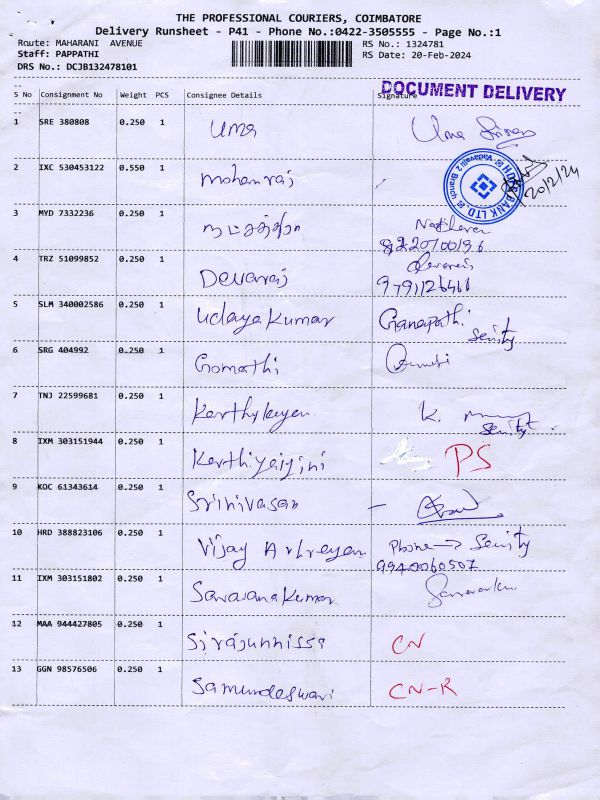 THE PROFESSIONAL COURIERS, COIMBATORE
Delivery Runsheet - P41 - Phone No.:0422-3505555 - Page No.:1
Route: MAHARANI AVENUE RS No.: 1324781
Staff: PAPPATHI RS Date: 20-Feb-2024
DRS No.: DCJB132478101
DOCUMENT DELIVERY
S No Consignment No Weight PCS Consignee Details Signature
1 SRE 380808 0.250 1 Uma Uma
2 IXC 530453122 0.550 1 mohanraj
BANK LTD. Vadavalli 2 Branch
20/2/24
3 MYD 7332236 0.250 1
4 TRZ 51099852 0.250 1 Devaraj
9791126468
5 SLM 340002586 0.250 1 Udaya Kumar Ganapathi
Senity
6 SRG 404992 0.250 1 Gomathi
7 TNJ 22599681 0.250 1 Karthykeyen K.
Senity
8 IXM 303151944 0.250 1 Karthiyaiyini PS
9 KOC 61343614 0.250 1 Srinivasan
10 HRD 388823106 0.250 1 Vijay Phone → Senity
9940060507
11 IXM 303151802 0.250 1 Saravana Kumar
12 MAA 944427805 0.250 1 Sirajunnissa CN
13 GGN 98576506 0.250 1 Samundeswari CN-R